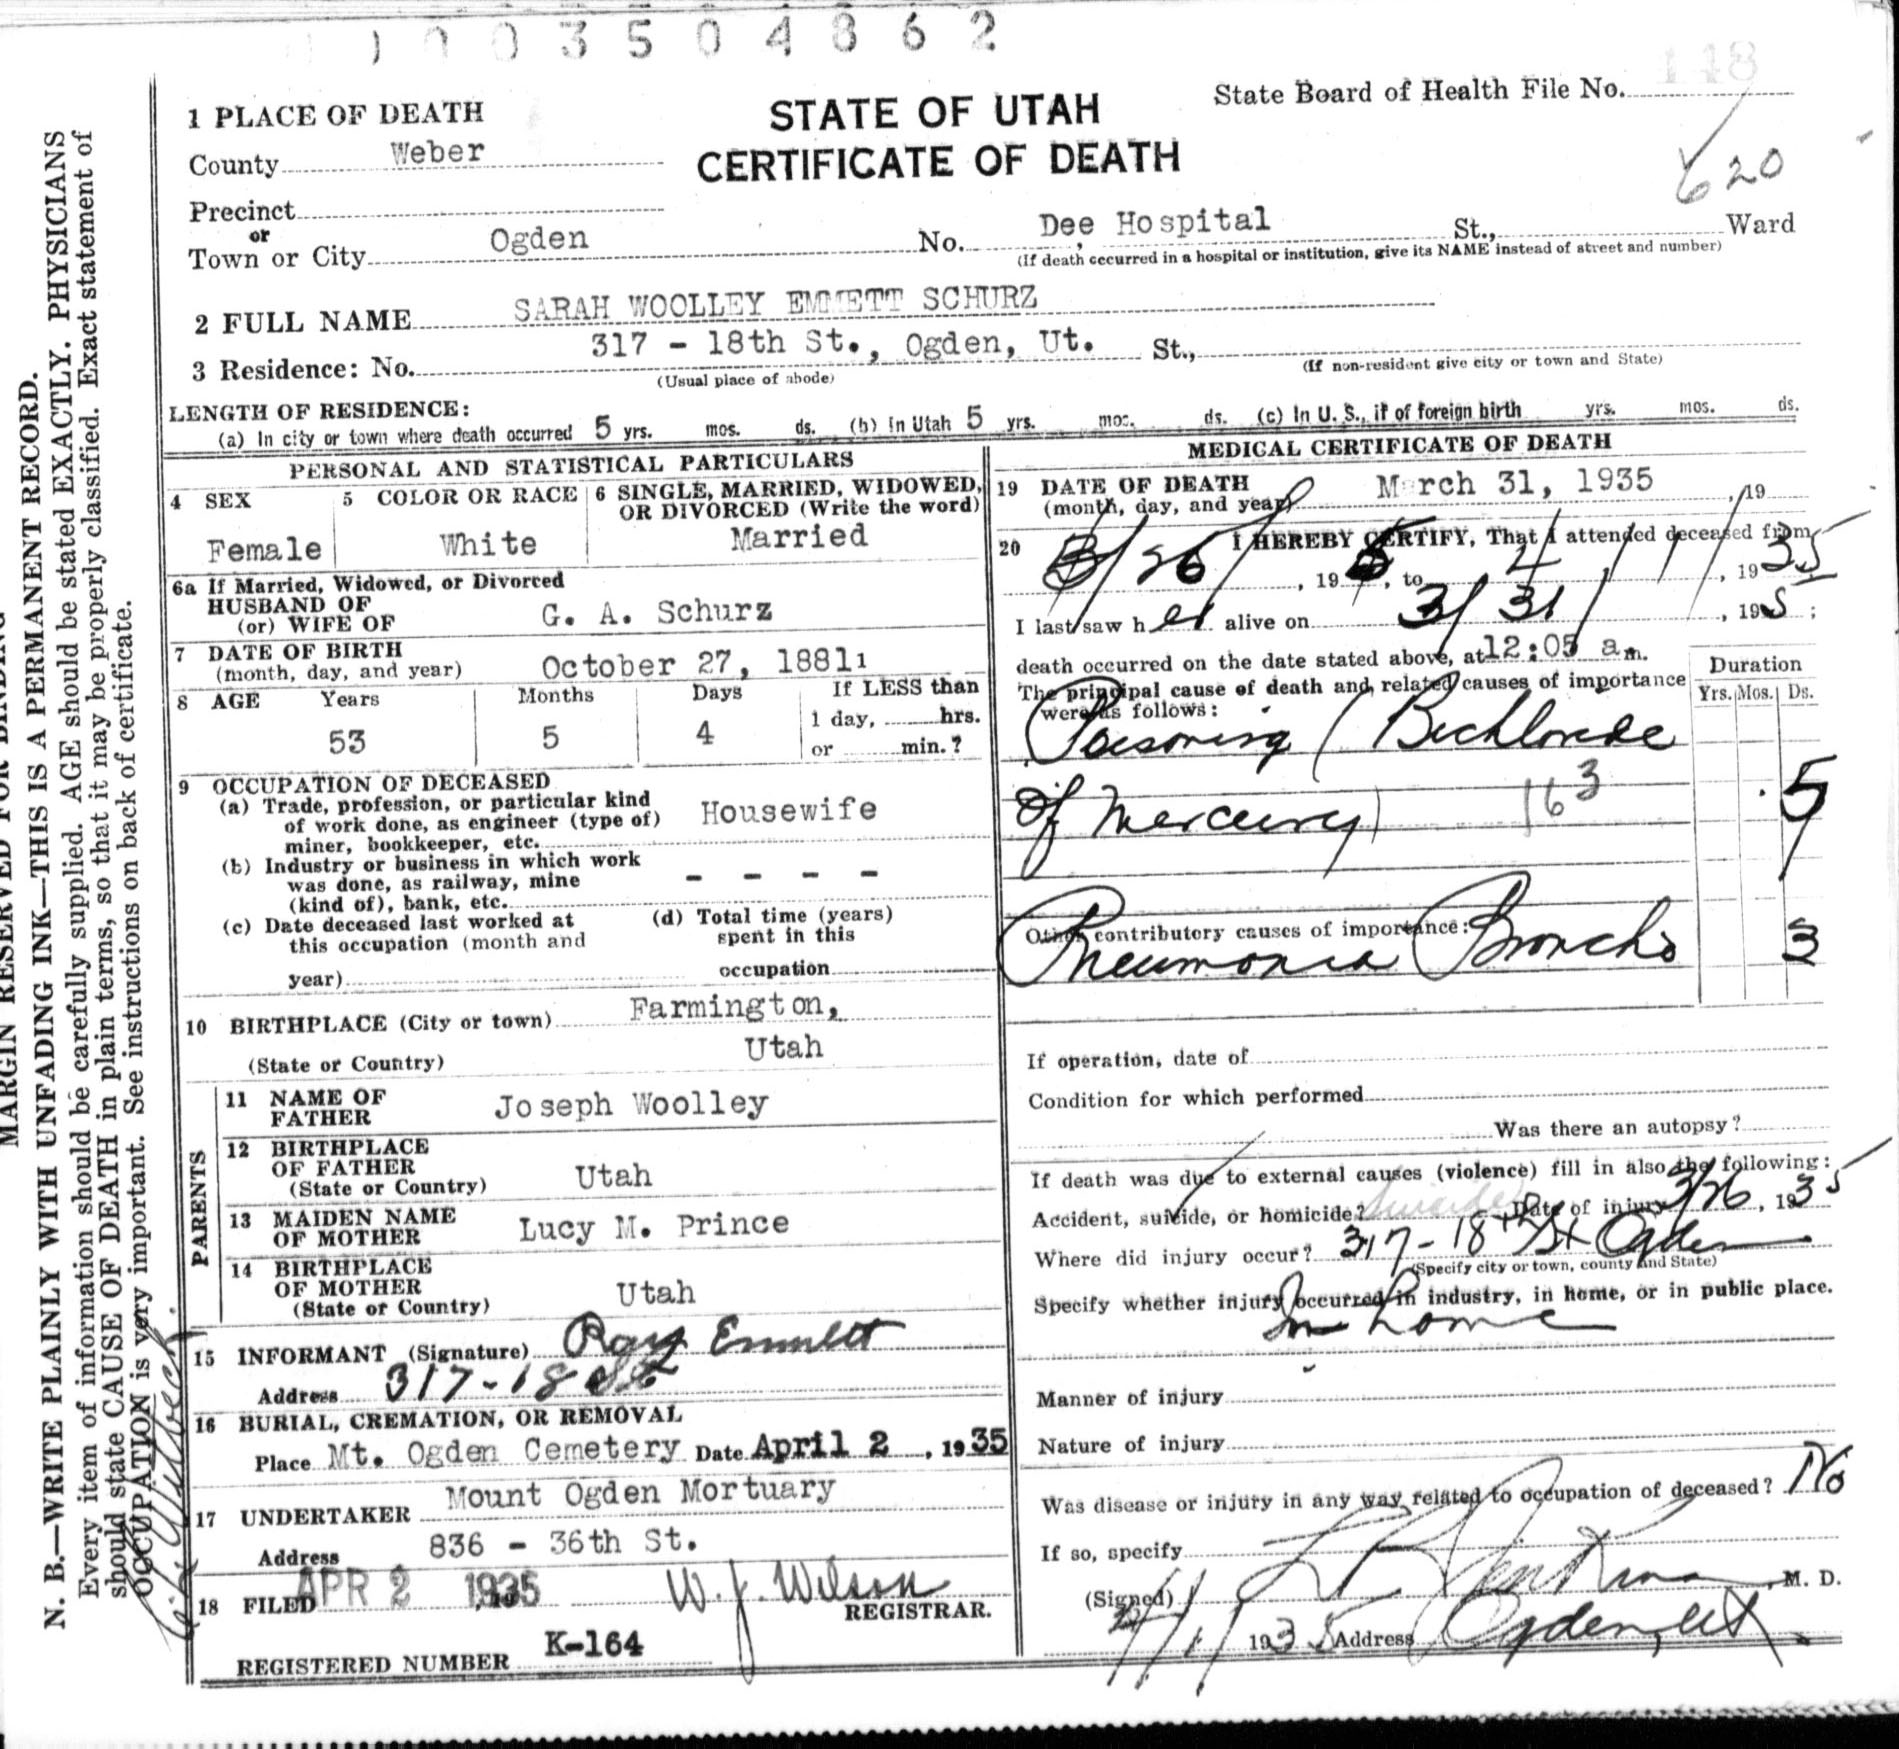 1003504862
148
1 PLACE OF DEATH
STATE OF UTAH
State Board of Health File No.
County Weber
CERTIFICATE OF DEATH
620
Precinct
or
Town or City Ogden No. Dee Hospital St., Ward
(If death occurred in a hospital or institution, give its NAME instead of street and number)
2 FULL NAME SARAH WOOLLEY EMMETT SCHURZ
3 Residence: No. 317 - 18th St., Ogden, Ut. St.,
(Usual place of abode) (If non-resident give city or town and State)
LENGTH OF RESIDENCE:
(a) In city or town where death occurred 5 yrs. mos. ds. (b) In Utah 5 yrs. mos. ds. (c) In U. S., if of foreign birth yrs. mos. ds.
PERSONAL AND STATISTICAL PARTICULARS
4 SEX 5 COLOR OR RACE 6 SINGLE, MARRIED, WIDOWED,
OR DIVORCED (Write the word)
Female White Married
6a If Married, Widowed, or Divorced
HUSBAND OF
(or) WIFE OF G. A. Schurz
7 DATE OF BIRTH
(month, day, and year) October 27, 18811
8 AGE Years Months Days If LESS than
1 day, hrs.
53 5 4 or min.?
9 OCCUPATION OF DECEASED
(a) Trade, profession, or particular kind
of work done, as engineer (type of) Housewife
miner, bookkeeper, etc.
(b) Industry or business in which work
was done, as railway, mine - - - -
(kind of), bank, etc.
(c) Date deceased last worked at (d) Total time (years)
this occupation (month and spent in this
year) occupation
10 BIRTHPLACE (City or town) Farmington,
(State or Country) Utah
PARENTS
11 NAME OF
FATHER Joseph Woolley
12 BIRTHPLACE
OF FATHER
(State or Country) Utah
13 MAIDEN NAME
OF MOTHER Lucy M. Prince
14 BIRTHPLACE
OF MOTHER
(State or Country) Utah
15 INFORMANT (Signature) Ray Emmett
Address 317-18 St
16 BURIAL, CREMATION, OR REMOVAL
Place Mt. Ogden Cemetery Date April 2, 1935
17 UNDERTAKER Mount Ogden Mortuary
Address 836 - 36th St.
18 FILED APR 2 1935 W. J. Wilson
REGISTRAR.
REGISTERED NUMBER K-164
MEDICAL CERTIFICATE OF DEATH
19 DATE OF DEATH
(month, day, and year) March 31, 1935, 19
20 I HEREBY CERTIFY, That I attended deceased from
3/26, 195, to 4/1/, 1935
I last saw her alive on 3/31/, 195;
death occurred on the date stated above, at 12:05 a.m.
Duration
The principal cause of death and related causes of importance
were as follows:
Yrs. Mos. Ds.
Poisoning (Bichloride
of Mercury) 163 5
Other contributory causes of importance:
Pneumonia Broncho 3
If operation, date of
Condition for which performed
Was there an autopsy?
If death was due to external causes (violence) fill in also the following:
Accident, suicide, or homicide? Suicide Date of injury 3/26, 1935
Where did injury occur? 317-18th St Ogden
(Specify city or town, county and State)
Specify whether injury occurred in industry, in home, or in public place.
In home
Manner of injury
Nature of injury
Was disease or injury in any way related to occupation of deceased? No
If so, specify
(Signed) M. D.
4/1/1935 Address Ogden, Ut.
MARGIN RESERVED FOR BINDING
N. B.—WRITE PLAINLY WITH UNFADING INK—THIS IS A PERMANENT RECORD.
Every item of information should be carefully supplied. AGE should be stated EXACTLY. PHYSICIANS
should state CAUSE OF DEATH in plain terms, so that it may be properly classified. Exact statement of
OCCUPATION is very important. See instructions on back of certificate.